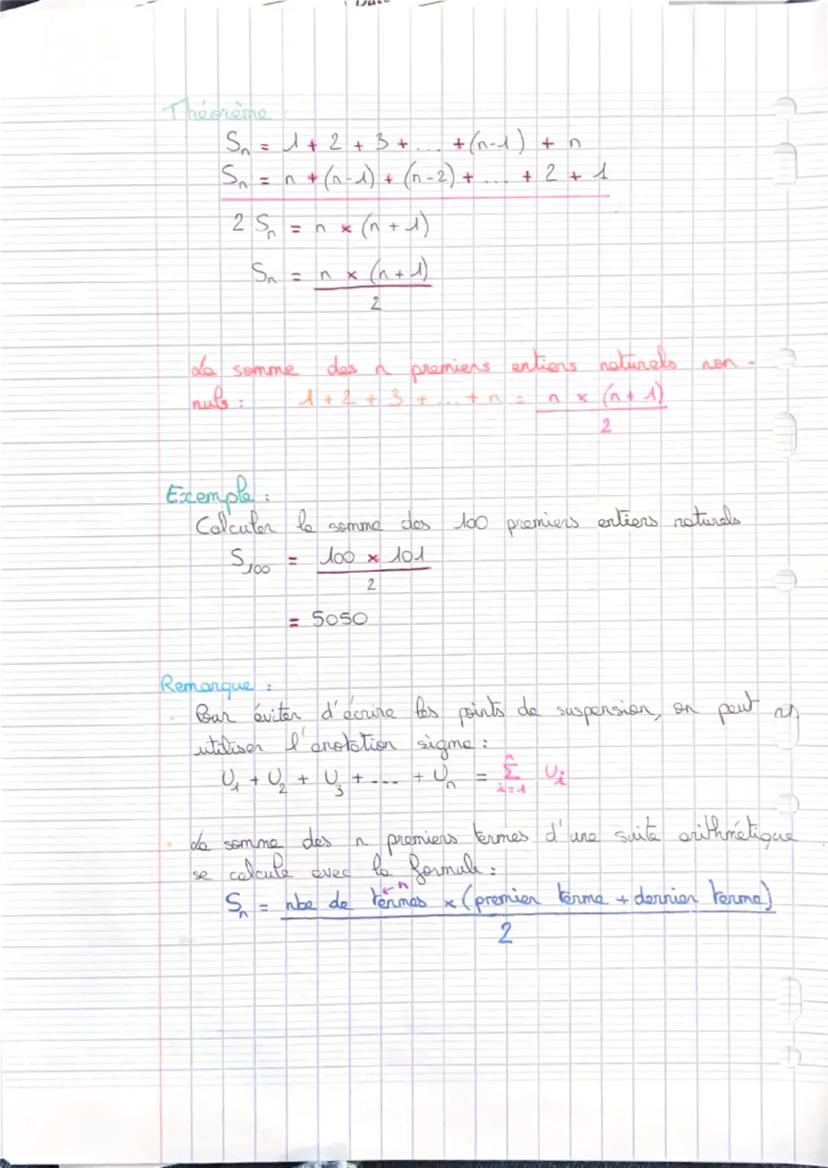 Théorème :
Sₙ = 1 + 2 + 3 + ... + (n-1) + n
Sₙ = n + (n-1) + (n-2) + ... + 2 + 1
2 Sₙ = n × (n + 1)
Sₙ = n × (n + 1)
2
La somme des n premiers entiers naturels non-
nuls : 1 + 2 + 3 + ... + n = n × (n + 1)
2
Exemple :
Calculer la somme des 100 premiers entiers naturels
S₁₀₀ = 100 × 101
2
= 5050
Remarque :
Pour éviter d'écrire les points de suspension, on peut
utiliser l'anotation sigma :
U₁ + U₂ + U₃ + ... + Uₙ = n Σ i=1 Uᵢ
La somme des n premiers termes d'une suite arithmétique
se calcule avec la formule :
← n
Sₙ = nbe de termes × (premier terme + dernier terme)
2